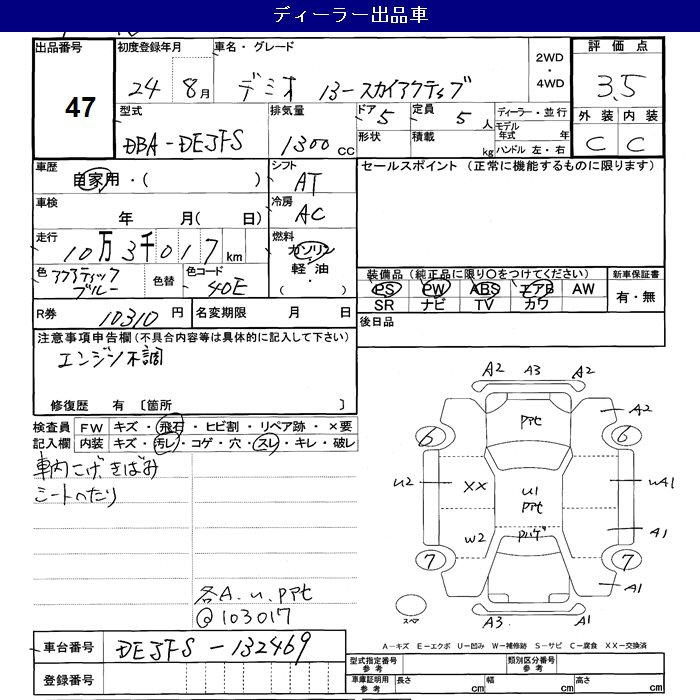 ディーラー出品車
出品番号 47
初度登録年月 24年 8月
車名・グレード デミオ 13-スカイアクティブ
2WD・4WD
評価点 3.5
外装 内装
C C
型式 DBA-DEJFS
排気量 1300 cc
ドア 5
定員 5人
形状
積載 kg
ディーラー・並行
モデル年式 年
ハンドル 左・右
車歴 自家用・( )
シフト AT
セールスポイント (正常に機能するものに限ります)
車検 年 月( 日)
冷房 AC
走行 10万3千017km
燃料 ガソリン・軽油・( )
色 アクアティックブルー
色替
色コード 40E
装備品 (純正品に限り○をつけてください)
新車保証書
PS PW ABS エアB AW
有・無
SR ナビ TV カワ
R券 10310円
名変期限 月 日
後日品
注意事項申告欄 (不具合内容等は具体的に記入して下さい)
エンジン不調
修復歴 有 〔箇所 〕
検査員記入欄
FW キズ・飛石・ヒビ割・リペア跡・×要
内装 キズ・汚レ・コゲ・穴・スレ・キレ・破レ
車内こげ、きばみ
シートへたり
各A.u.PPt
@103017
A2 A3 A2
PPt
A2
6 6
U2 XX U1 PPt WA1
W2 Pハゲ A1
7 7
A1
スペア
A3 A1
A-キズ E-エクボ U-凹み W-補修跡 S-サビ C-腐食 XX-交換済
車台番号 DEJFS-132469
登録番号
型式指定番号 参考
類別区分番号 参考
車庫証明用 参考 長さ cm 幅 cm 高さ cm